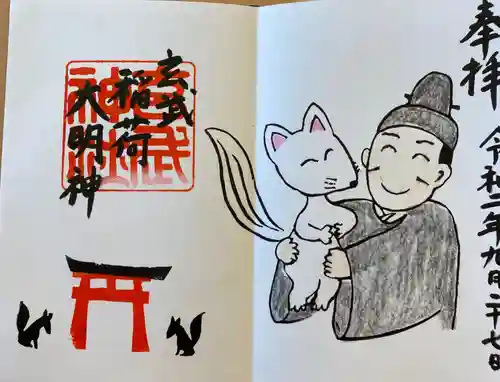 奉拝
令和二年九月二十七日
玄武
稲荷
大明神
玄武
神社